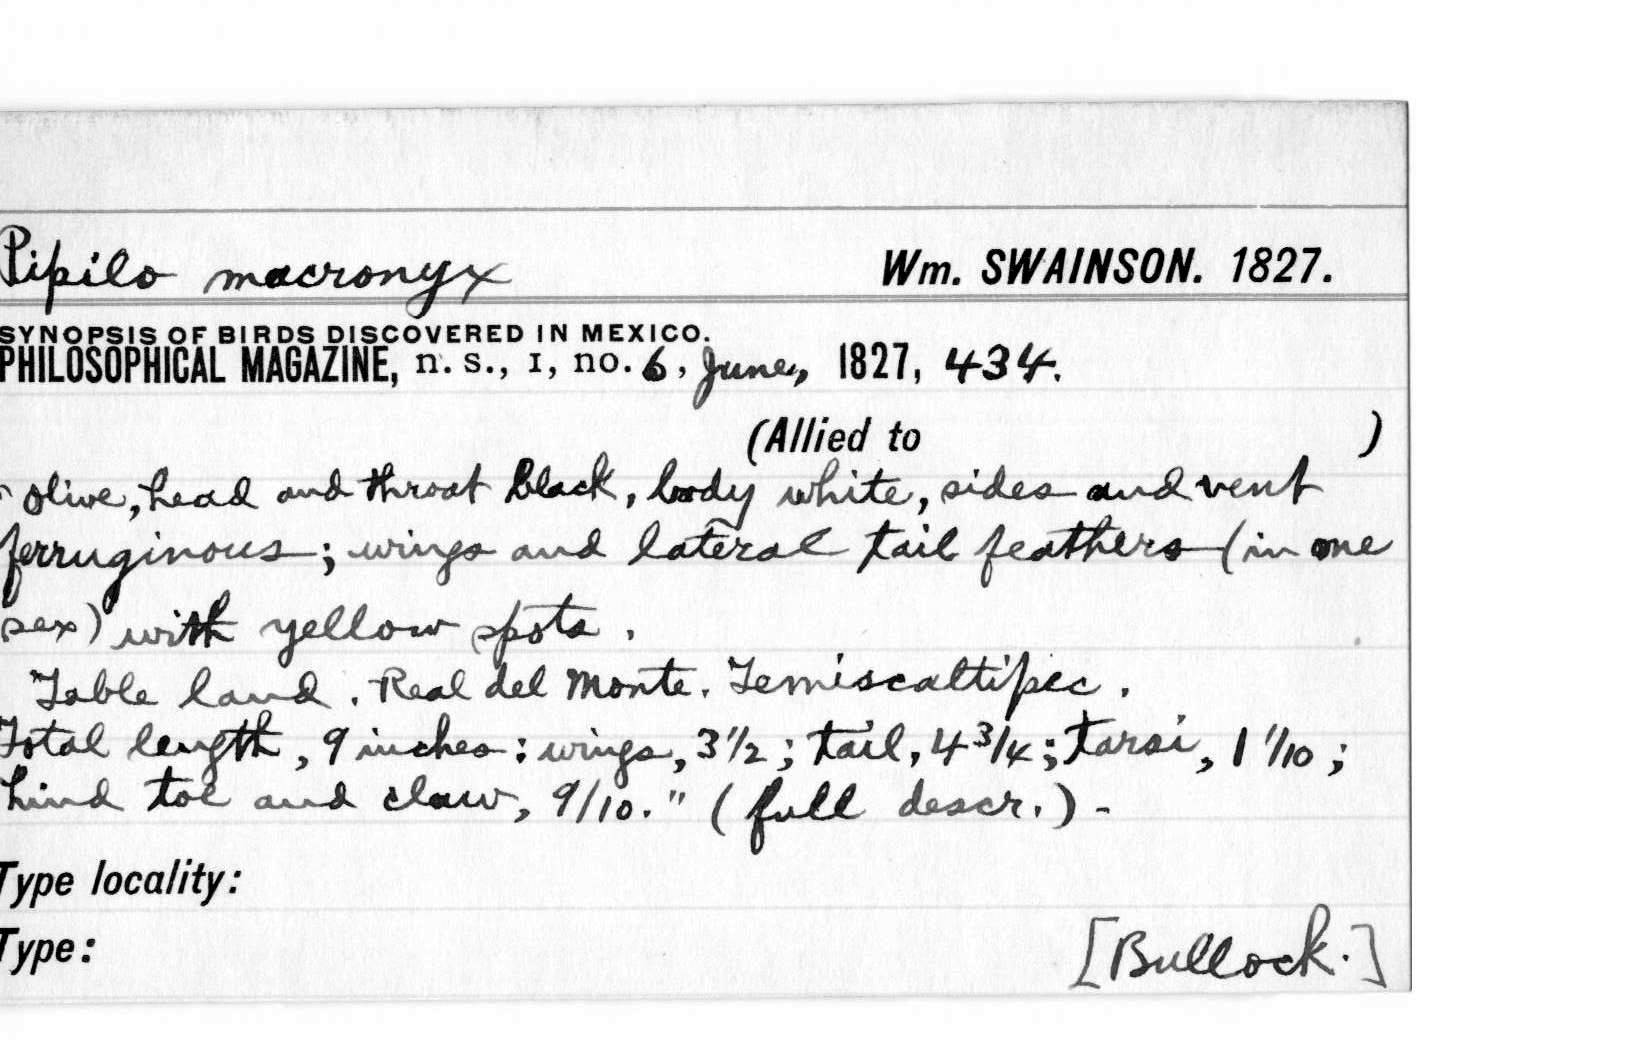 Pipilo macronyx Wm. SWAINSON. 1827.
SYNOPSIS OF BIRDS DISCOVERED IN MEXICO.
PHILOSOPHICAL MAGAZINE, n. s., I, no. 6, June, 1827, 434.
(Allied to )
"Olive, head and throat black, body white, sides and vent
ferruginous; wings and lateral tail feathers (in one
sex) with yellow spots.
"Table land. Real del Monte. Temiscaltipec.
Total length, 9 inches: wings, 3 1/2; tail, 4 3/4; tarsi, 1 1/10;
hind toe and claw, 9/10." (full descr.) -
Type locality:
Type: [Bullock.]